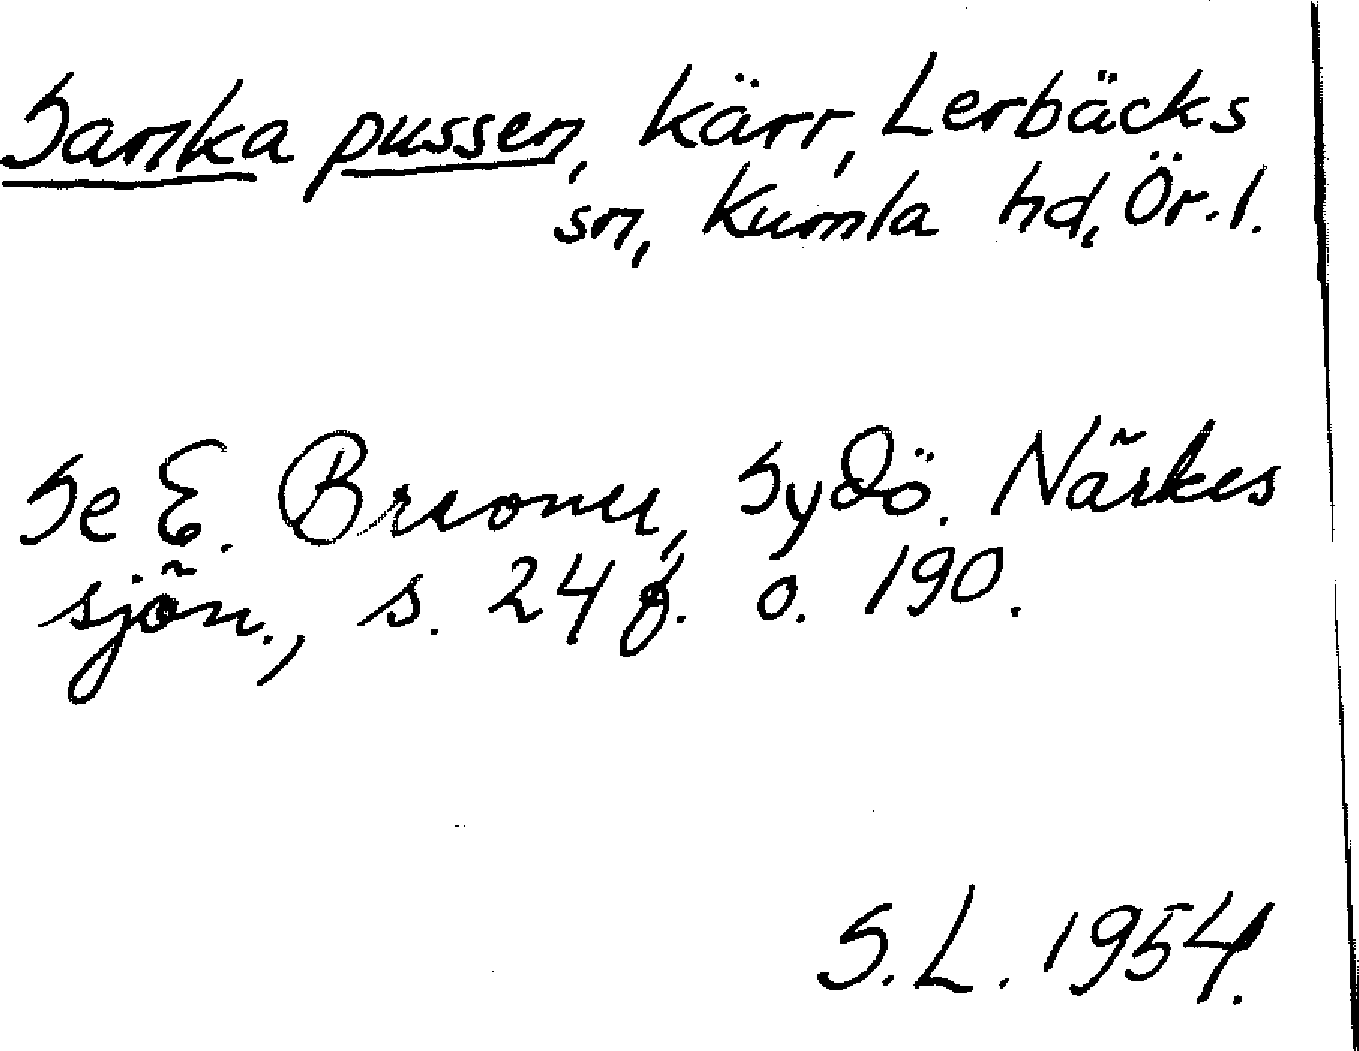 Sanka pussen, kärr, Lerbäcks
sn, Kumla hd, Ör. l.
Se E. Brevner, Sydö. Närkes
sjön., s. 24 f. o. 190.
S.L. 1954.